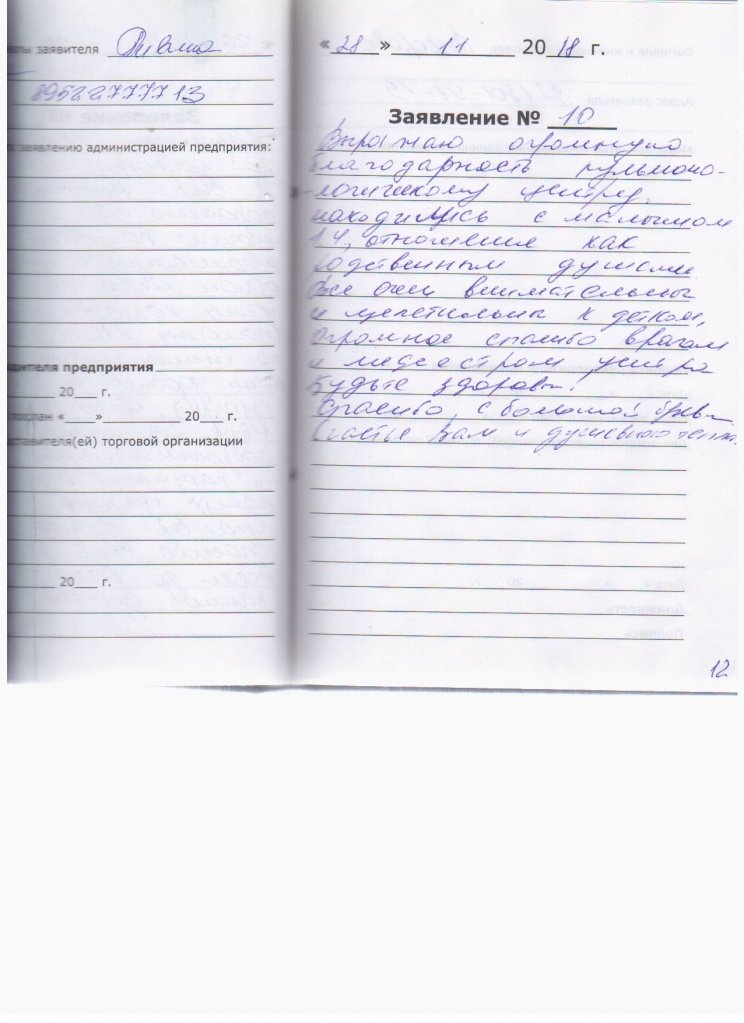 заявителя
89522777713
заявлению администрацией предприятия:
предприятия
20 г.
« » 20 г.
ставителя(ей) торговой организации
20 г.
«28» 11 2018 г.
Заявление № 10
Выражаю огромную
благодарность пульмоно-
-логическому центру.
находились с малышом
1 г, отношение как
родственным душам.
Все очен внимательны
и щепетильны к деткам,
огромное спасибо врачам
и медсестрам центра
будьте здоровы!
Спасибо, с большой буквы.
Счастье Вам и душевного тепла.
12